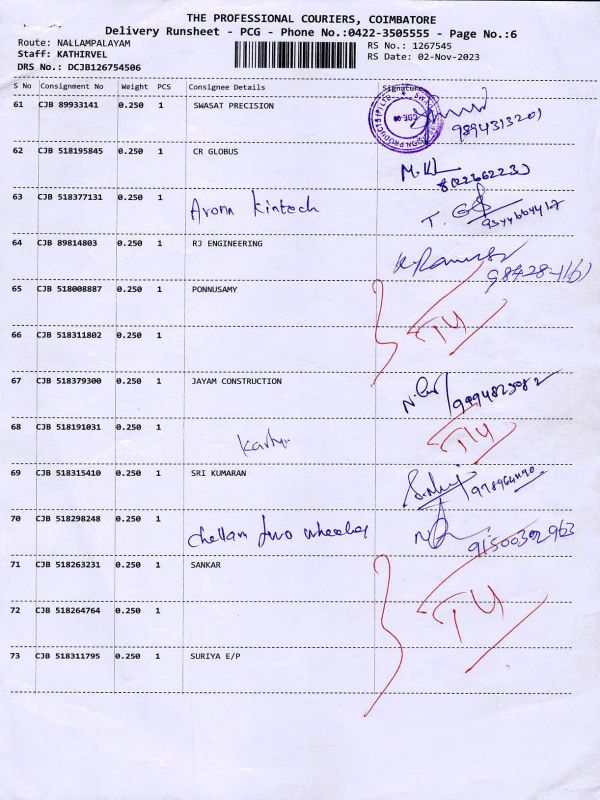 THE PROFESSIONAL COURIERS, COIMBATORE
Delivery Runsheet - PCG - Phone No.:0422-3505555 - Page No.:6
Route: NALLAMPALAYAM
RS No.: 1267545
Staff: KATHIRVEL
RS Date: 02-Nov-2023
DRS No.: DCJB126754506
S No Consignment No Weight PCS Consignee Details Signature
61 CJB 89933141 0.250 1 SWASAT PRECISION
9894313201
62 CJB 518195845 0.250 1 CR GLOBUS
63 CJB 518377131 0.250 1 Aronn Kintech
64 CJB 89814803 0.250 1 RJ ENGINEERING
65 CJB 518008887 0.250 1 PONNUSAMY
66 CJB 518311802 0.250 1
67 CJB 518379300 0.250 1 JAYAM CONSTRUCTION
9994825082
68 CJB 518191031 0.250 1
69 CJB 518315410 0.250 1 SRI KUMARAN
70 CJB 518298248 0.250 1 Chellam two wheeler
9150032963
71 CJB 518263231 0.250 1 SANKAR
72 CJB 518264764 0.250 1
73 CJB 518311795 0.250 1 SURIYA E/P